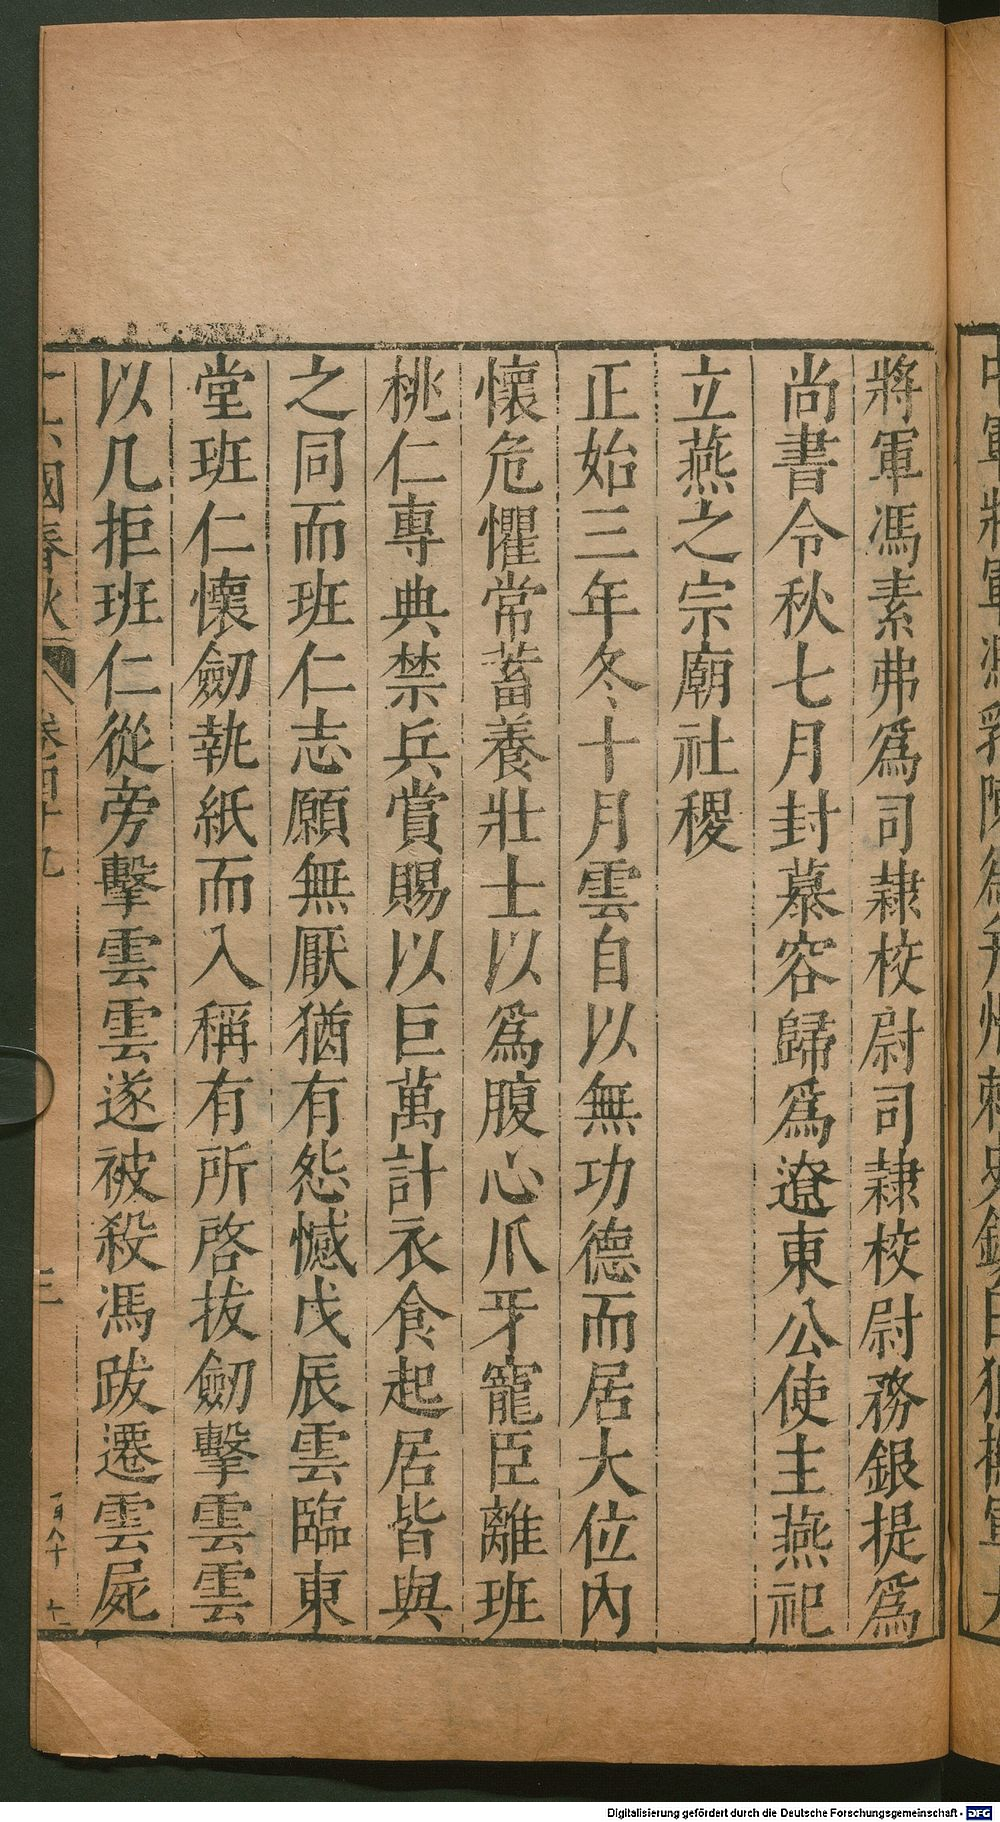 將軍馮素弗爲司隷校尉司隷校尉務銀提爲
尚書令秋七月封慕容歸爲遼東公使主燕祀
立燕之宗廟社稷
正始三年冬十月雲自以無功德而居大位內
懷危懼常蓄養壯士以爲腹心爪牙寵臣離班
桃仁專典禁兵賞賜以巨萬計衣食起居皆與
之同而班仁志願無厭猶有怨憾戊辰雲臨東
堂班仁懷劒執紙而入稱有所啓拔劒擊雲雲
以几拒班仁從旁擊雲雲遂被殺馮跋遷雲屍
國春秋
三
Digitalisierung gefördert durch die Deutsche Forschungsgemeinschaft - DFG